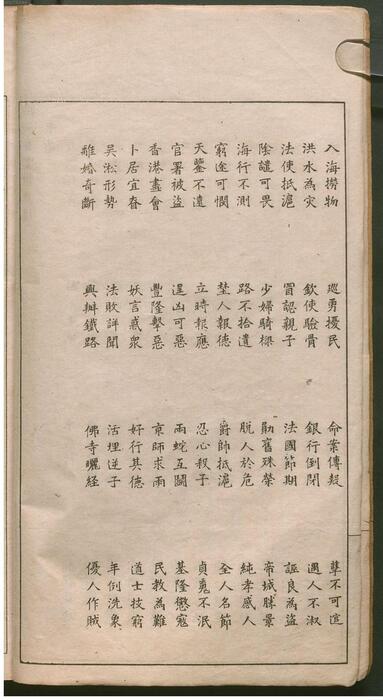 入海撈物 廵勇擾民 命案傳疑 孽不可逭
洪水為灾 欽使驗骨 銀行倒閉 遇人不淑
法使抵滬 冒認親子 法國節期 誣良為盜
陰譴可畏 少婦騎樑 勛舊殊榮 帝城勝景
海行不測 路不拾遺 脫人於危 純孝感人
窮途可憫 埜人報德 爵帥抵滬 全人名節
天鑒不遠 立時報應 忍心殺子 貞魂不泯
官署被盜 逞凶可惡 兩蛇互鬬 基隆懲寇
香港畫會 豐隆擊惡 京師求雨 民教為難
卜居宜眘 妖言惑衆 好行其德 道士技窮
吳淞形勢 法敗詳聞 活埋逆子 年例洗象
離婚奇斷 興辦鐵路 佛寺曬經 優人作賊